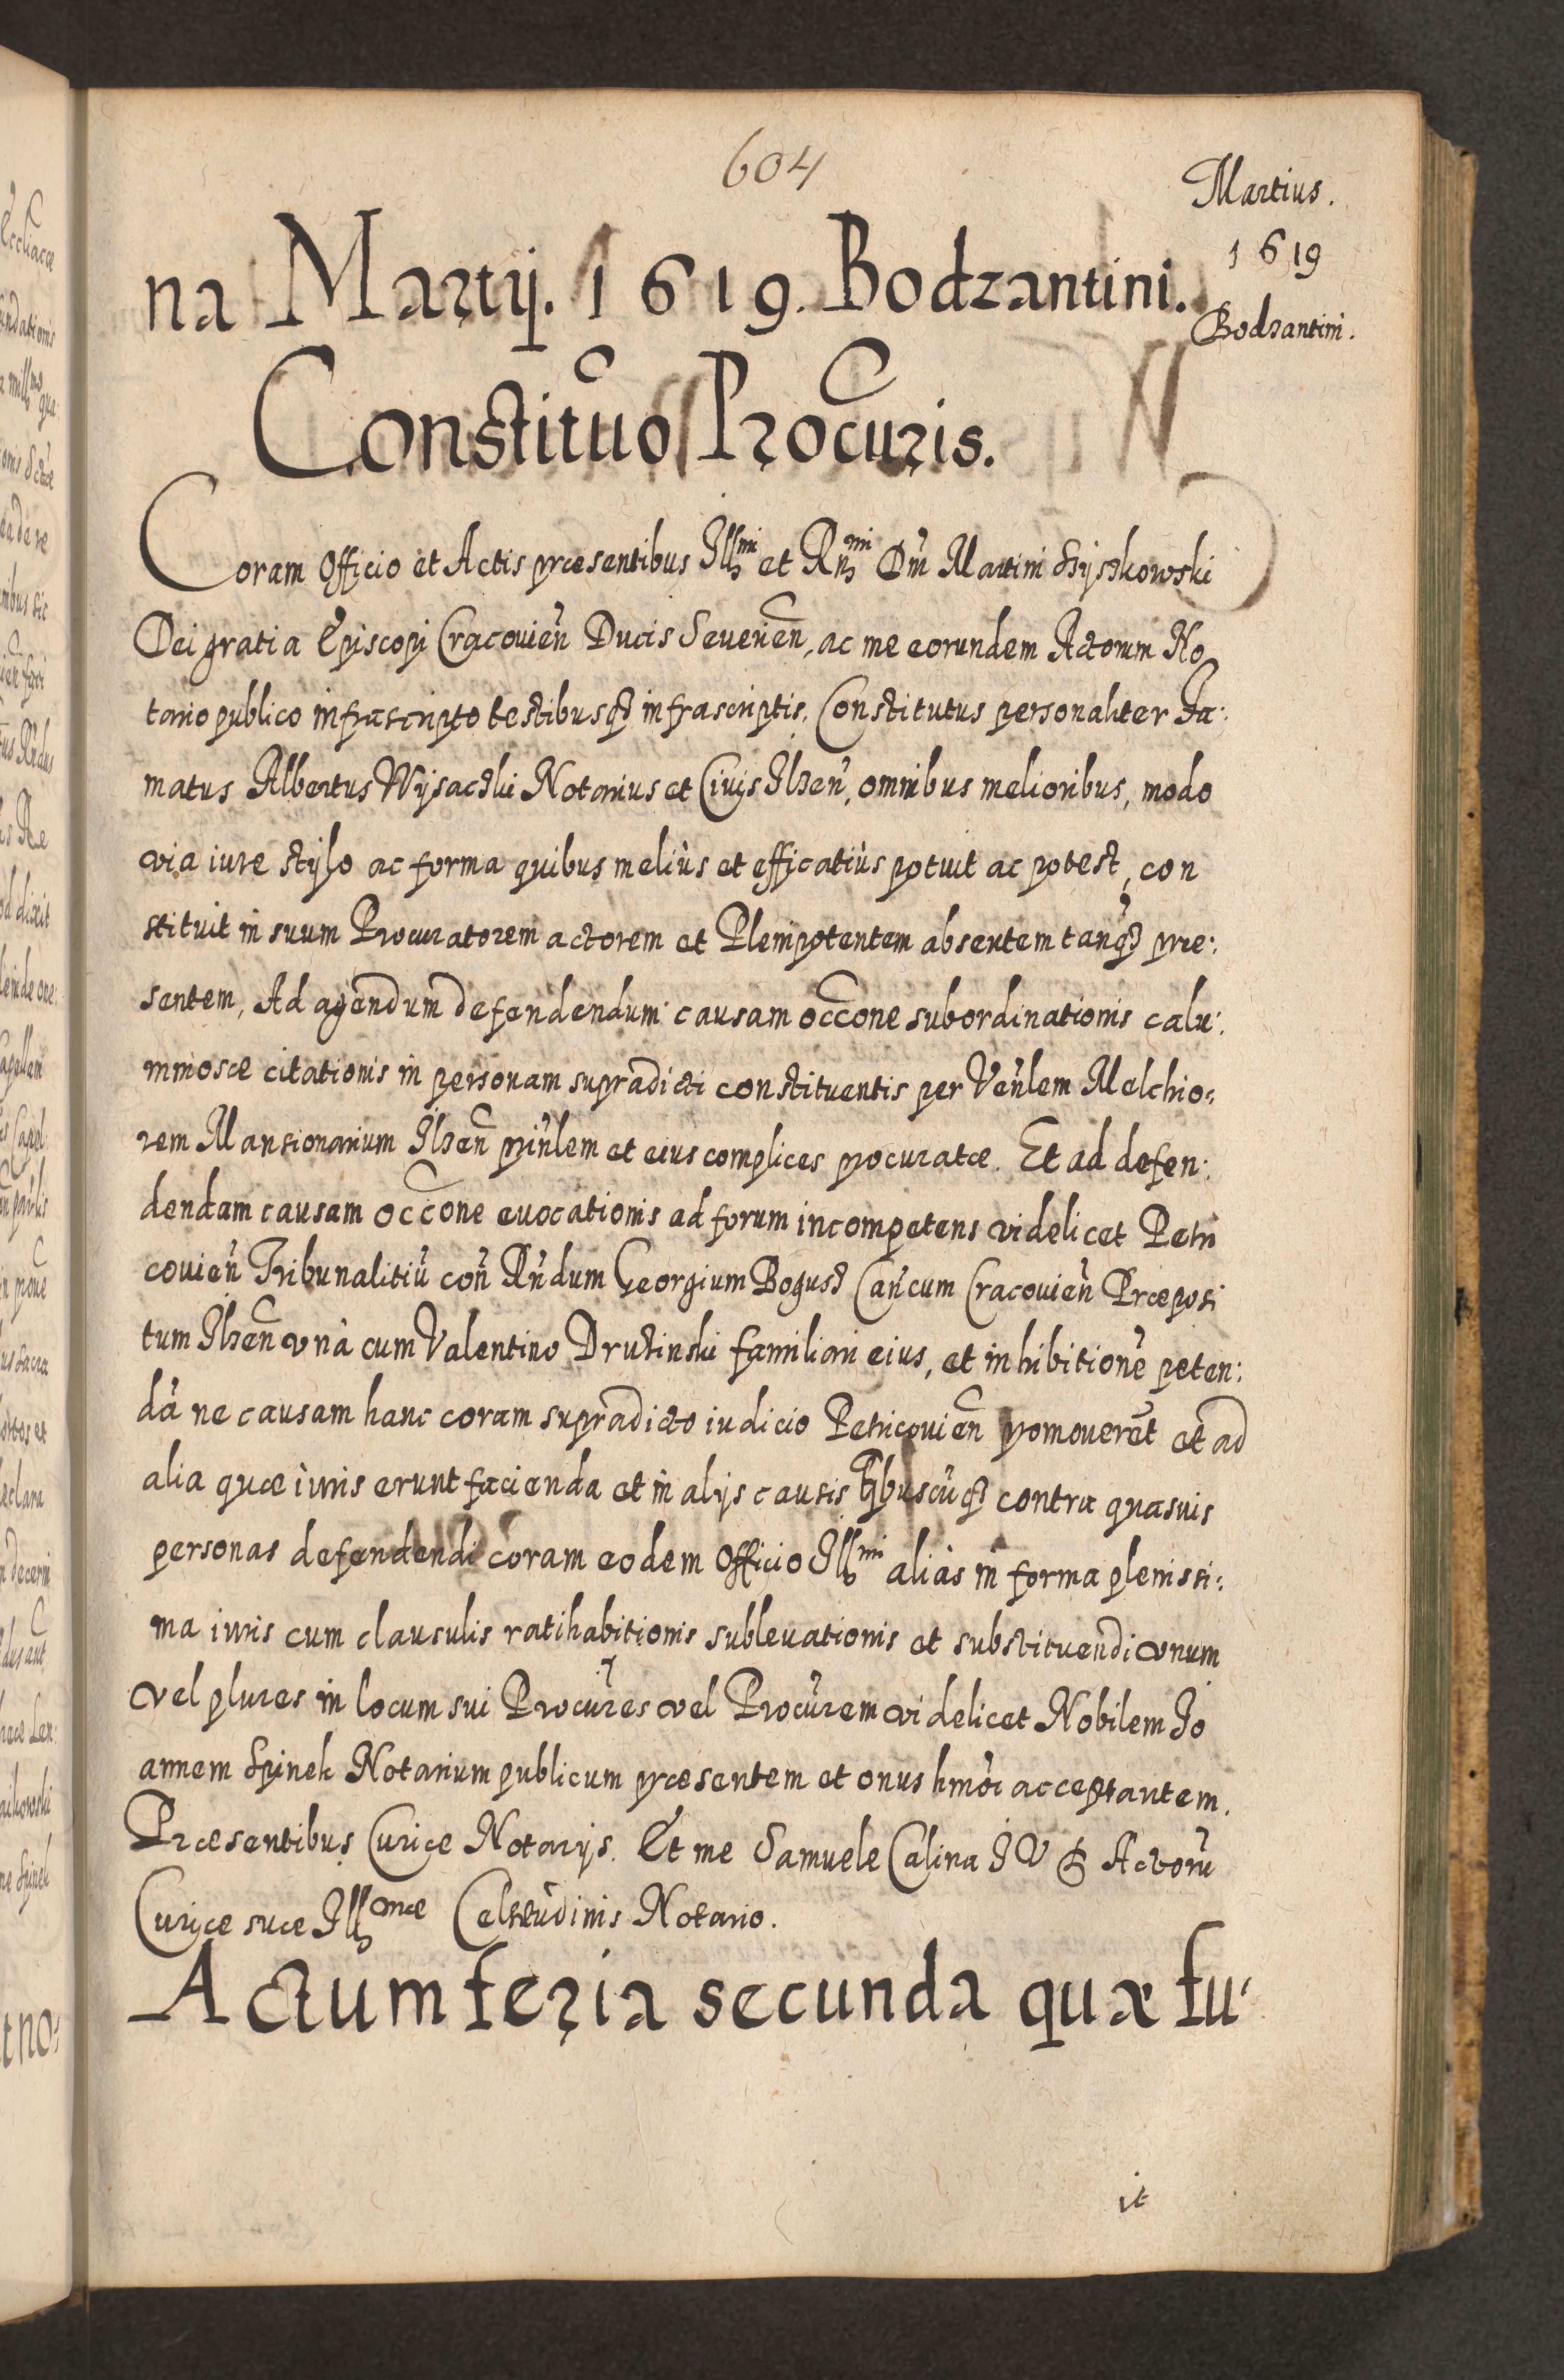 604
Martius.
1619
Bodzantini.
na Martij. 1619. Bodzantini.
Constituo Procuris.
Coram Officio et Actis præsentibus Illmi et Rmi Dni Martini Szyszkowski
Dei gratia Episcopi Cracovien̄ Ducis Severien̄, ac me eorundem Actorum No
tario publico infrascripto testibusq3 infrascriptis. Constitutus personaliter Fa:
matus Albertus Wysaczki Notarius et Civis Ilzen̄, omnibus melioribus, modo
via iure stylo ac forma quibus meliùs et efficatiùs potuit ac potest, con
stituit in suum Procuratorem actorem et Plenipotentem absentem tanq3 præ:
sentem, Ad agendum defendendum causam occone subordinationis calu:
mniosæ citationis in personam supradicti constituentis per Ven̄lem Melchio:
rem Mansionarium Ilzen̄ prin̄lem et eius complices procuratæ. Et ad defen:
dendam causam occone evocationis ad forum incompetens videlicet Petri
covien̄ Tribunalitiū con̄ Rn̄dum Georgium Bogusz Can̄cum Cracovien̄ Præposi
tum Ilzen̄ unà cum Valentino Drustinski familiari eius, et inhibitionē peten:
dā ne causam hanc coram supradicto iudicio Petricovien̄ promoverēt et ad
alia quæ iuris erunt facienda et in alijs causis qbuscūq3 contra quasvis
personas defendendi coram eodem Officio Illmi aliàs in forma plenissi:
ma iuris cum clausulis ratihabitionis sublevationis et substituendi unum
vel plures in locum sui Procūres vel Procūrem videlicet Nobilem Jo
annem Spinek Notarium publicum præsentem et onus hmōi acceptantem.
Præsentibus Curiæ Notarijs. Et me Samuele Calina I V D Actorū
Curiæ suæ Illmæ Celsitudinis Notario.
Actum feria secunda quæ fu
it